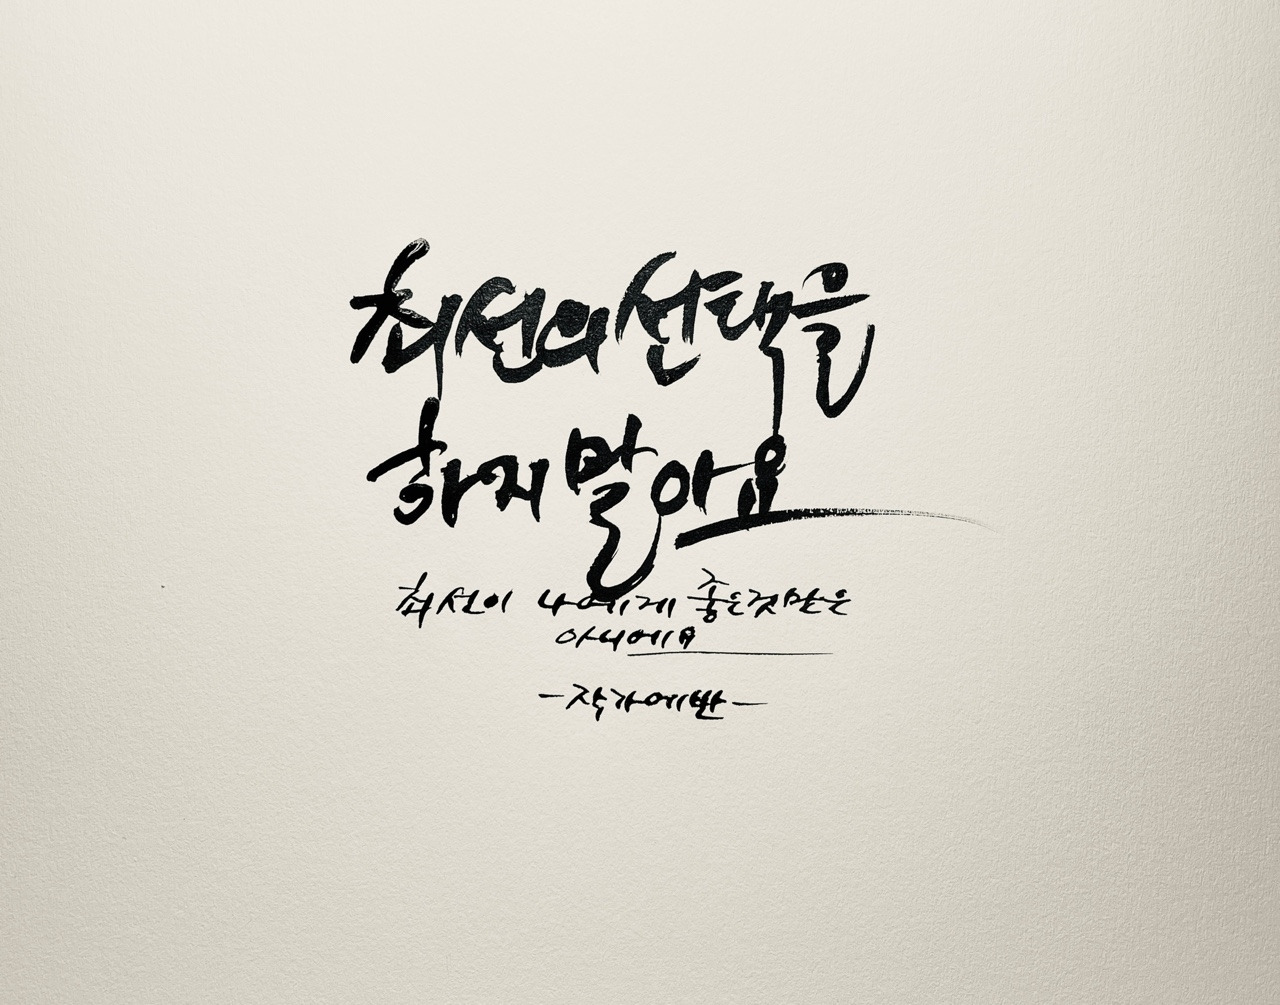 최선의 선택을
하지 말아요
최선이 나에게 좋은것만은
아니에요
-작가에반-